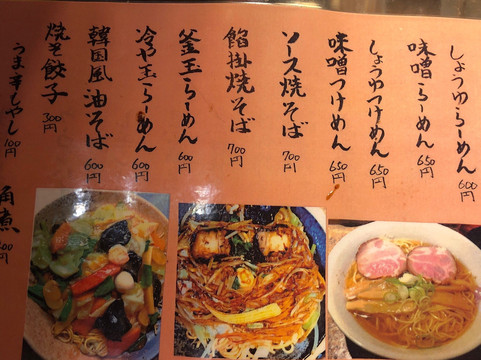 しょうゆらーめん 600円
味噌らーめん 650円
しょうゆつけめん 650円
味噌つけめん 650円
ソース焼そば 700円
餡掛焼そば 700円
釜玉らーめん 600円
冷や玉らーめん 600円
韓国風油そば 600円
焼き餃子 300円
うま辛しやし 100円
角煮
00円